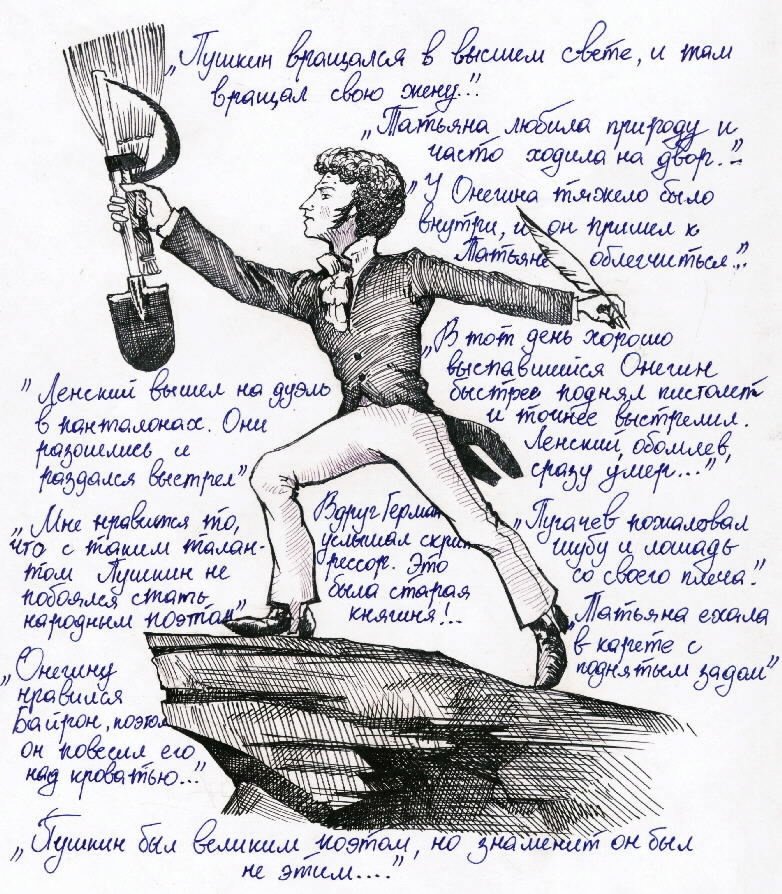 „Пушкин вращался в высшем свете, и там
вращал свою жену..."
„Татьяна любила природу и
часто ходила на двор..."
„У Онегина тяжело было
внутри, и он пришел к
Татьяне облегчиться..."
„В тот день хорошо
выспавшийся Онегин
быстрее поднял пистолет
и точнее выстрелил.
Ленский, обомлев,
сразу умер..."
"Ленский вышел на дуэль
в панталонах. Они
разошлись и
раздался выстрел"
„Мне нравится то,
что с таким талан-
том Пушкин не
побоялся стать
народным поэтом"
Вдруг Герман
услышал скрип
рессор. Это
была старая
княгиня!..
„Пугачев пожаловал
шубу и лошадь
со своего плеча."
„Татьяна ехала
в карете с
поднятым задом"
„Онегину
нравился
Байрон, поэтому
он повесил его
над кроватью..."
„Пушкин был великим поэтом, но знаменит он был
не этим...."